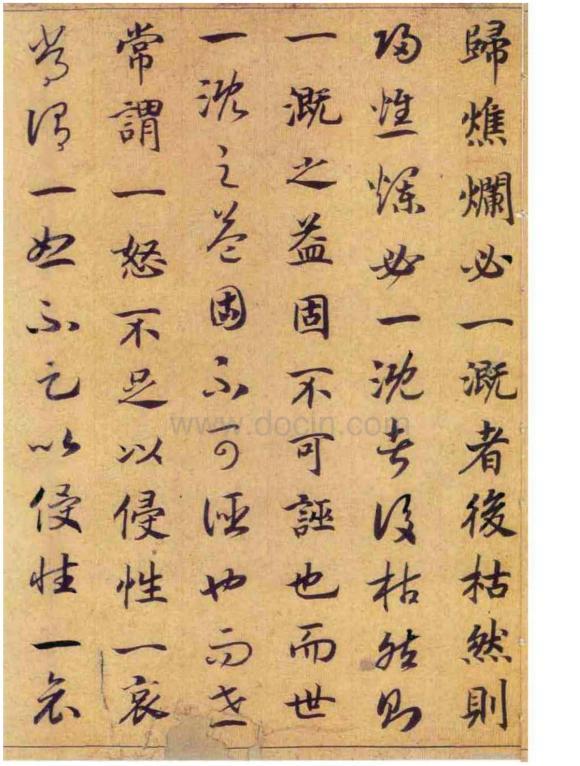 歸燋爛必一溉者後枯然則
歸燋爛必一溉者後枯然則
一溉之益固不可誣也而世
一溉之益固不可誣也而世
常謂一怒不足以侵性一哀
常謂一怒不足以侵性一哀
www.docin.com